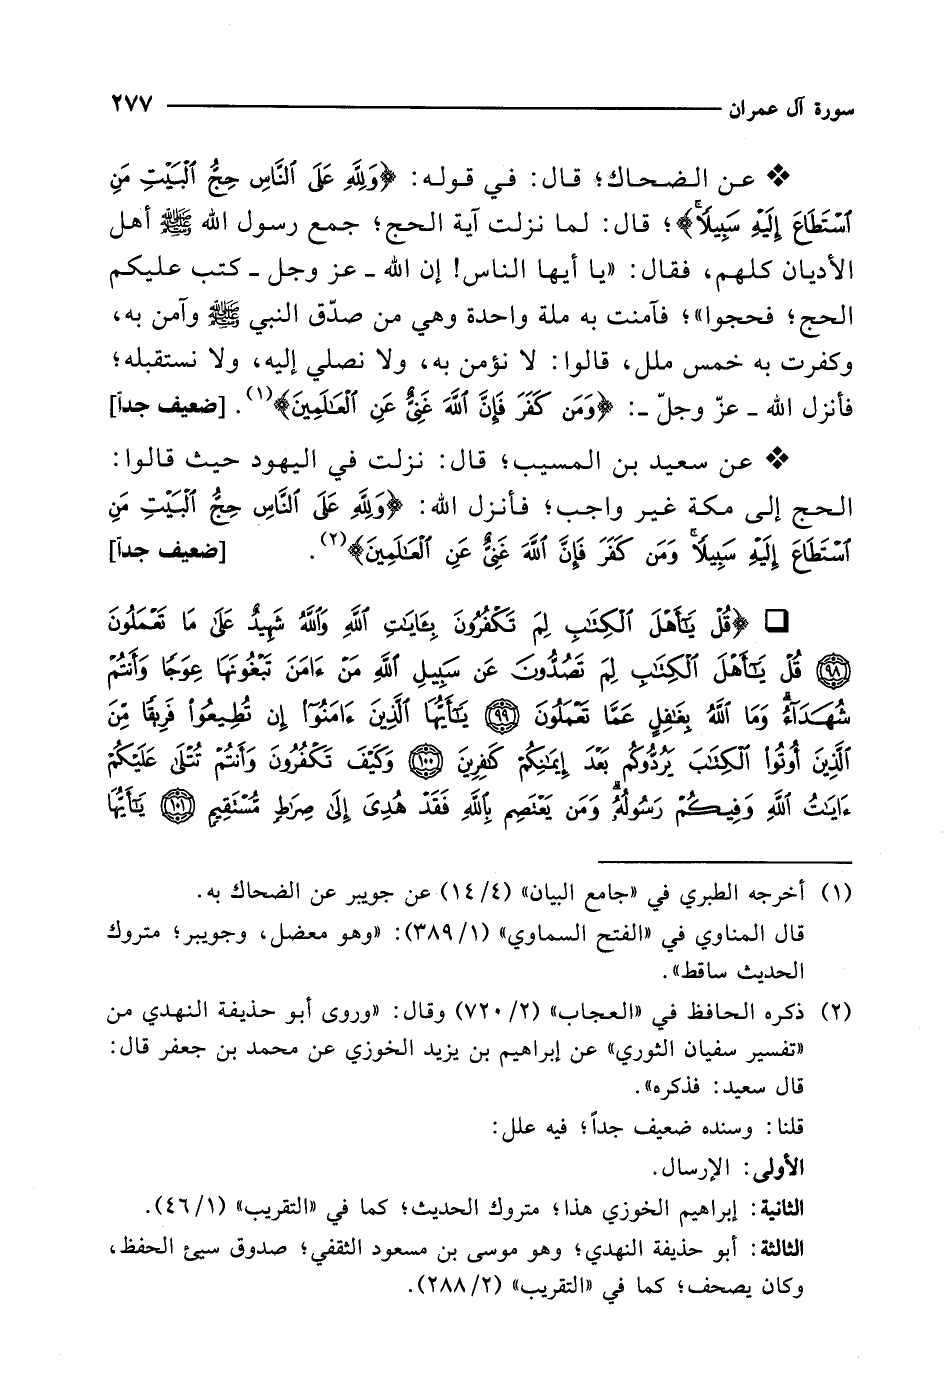 سورة آل عمران ٢٧٧
❖ عن الضحاك؛ قال: في قوله: ﴿وَلِلَّهِ عَلَى ٱلنَّاسِ حِجُّ ٱلْبَيْتِ مَنِ
ٱسْتَطَاعَ إِلَيْهِ سَبِيلًا﴾؛ قال: لما نزلت آية الحج؛ جمع رسول الله ﷺ أهل
الأديان كلهم، فقال: «يا أيها الناس! إن الله ـ عز وجل ـ كتب عليكم
الحج؛ فحجوا»؛ فآمنت به ملة واحدة وهي من صدّق النبي ﷺ وآمن به،
وكفرت به خمس ملل، قالوا: لا نؤمن به، ولا نصلي إليه، ولا نستقبله؛
فأنزل الله ـ عزّ وجلّ ـ: ﴿وَمَن كَفَرَ فَإِنَّ ٱللَّهَ غَنِيٌّ عَنِ ٱلْعَٰلَمِينَ﴾(١). [ضعيف جداً]
❖ عن سعيد بن المسيب؛ قال: نزلت في اليهود حيث قالوا:
الحج إلى مكة غير واجب؛ فأنزل الله: ﴿وَلِلَّهِ عَلَى ٱلنَّاسِ حِجُّ ٱلْبَيْتِ مَنِ
ٱسْتَطَاعَ إِلَيْهِ سَبِيلًا ۚ وَمَن كَفَرَ فَإِنَّ ٱللَّهَ غَنِيٌّ عَنِ ٱلْعَٰلَمِينَ﴾(٢). [ضعيف جداً]
❑ ﴿قُلْ يَٰٓأَهْلَ ٱلْكِتَٰبِ لِمَ تَكْفُرُونَ بِـَٔايَٰتِ ٱللَّهِ وَٱللَّهُ شَهِيدٌ عَلَىٰ مَا تَعْمَلُونَ
﴿٩٨﴾ قُلْ يَٰٓأَهْلَ ٱلْكِتَٰبِ لِمَ تَصُدُّونَ عَن سَبِيلِ ٱللَّهِ مَنْ ءَامَنَ تَبْغُونَهَا عِوَجًا وَأَنتُمْ
شُهَدَآءُ ۗ وَمَا ٱللَّهُ بِغَٰفِلٍ عَمَّا تَعْمَلُونَ ﴿٩٩﴾ يَٰٓأَيُّهَا ٱلَّذِينَ ءَامَنُوٓا۟ إِن تُطِيعُوا۟ فَرِيقًا مِّنَ
ٱلَّذِينَ أُوتُوا۟ ٱلْكِتَٰبَ يَرُدُّوكُم بَعْدَ إِيمَٰنِكُمْ كَٰفِرِينَ ﴿١٠٠﴾ وَكَيْفَ تَكْفُرُونَ وَأَنتُمْ تُتْلَىٰ عَلَيْكُمْ
ءَايَٰتُ ٱللَّهِ وَفِيكُمْ رَسُولُهُۥ ۗ وَمَن يَعْتَصِم بِٱللَّهِ فَقَدْ هُدِىَ إِلَىٰ صِرَٰطٍ مُّسْتَقِيمٍ ﴿١٠١﴾ يَٰٓأَيُّهَا
(١) أخرجه الطبري في «جامع البيان» (٤/ ١٤) عن جويبر عن الضحاك به.
قال المناوي في «الفتح السماوي» (١/ ٣٨٩): «وهو معضل، وجويبر؛ متروك
الحديث ساقط».
(٢) ذكره الحافظ في «العجاب» (٢/ ٧٢٠) وقال: «وروى أبو حذيفة النهدي من
«تفسير سفيان الثوري» عن إبراهيم بن يزيد الخوزي عن محمد بن جعفر قال:
قال سعيد: فذكره».
قلنا: وسنده ضعيف جداً؛ فيه علل:
الأولى: الإرسال.
الثانية: إبراهيم الخوزي هذا؛ متروك الحديث؛ كما في «التقريب» (١/ ٤٦).
الثالثة: أبو حذيفة النهدي؛ وهو موسى بن مسعود الثقفي؛ صدوق سيئ الحفظ،
وكان يصحف؛ كما في «التقريب» (٢/ ٢٨٨).